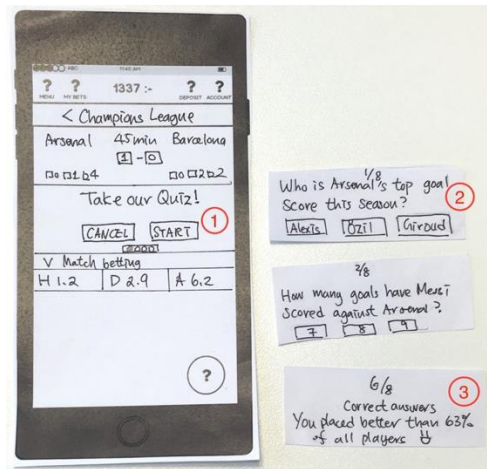 ABC 11:45 AM
? ? 1337 :- ? ?
MENU MY BETS DEPOSIT ACCOUNT
< Champions League
Arsenal 45min Barcelona
1 - 0
0 1 4 0 2 2
Take our Quiz!
CANCEL START
1
V Match betting
H 1.2 D 2.9 A 6.2
?
1/8
Who is Arsenal's top goal
Score this season?
2
Alexis Özil Giroud
2/8
How many goals have Messi
scored against Arsenal?
7 8 9
6/8
3
Correct answers
You placed better than 63%
of all players